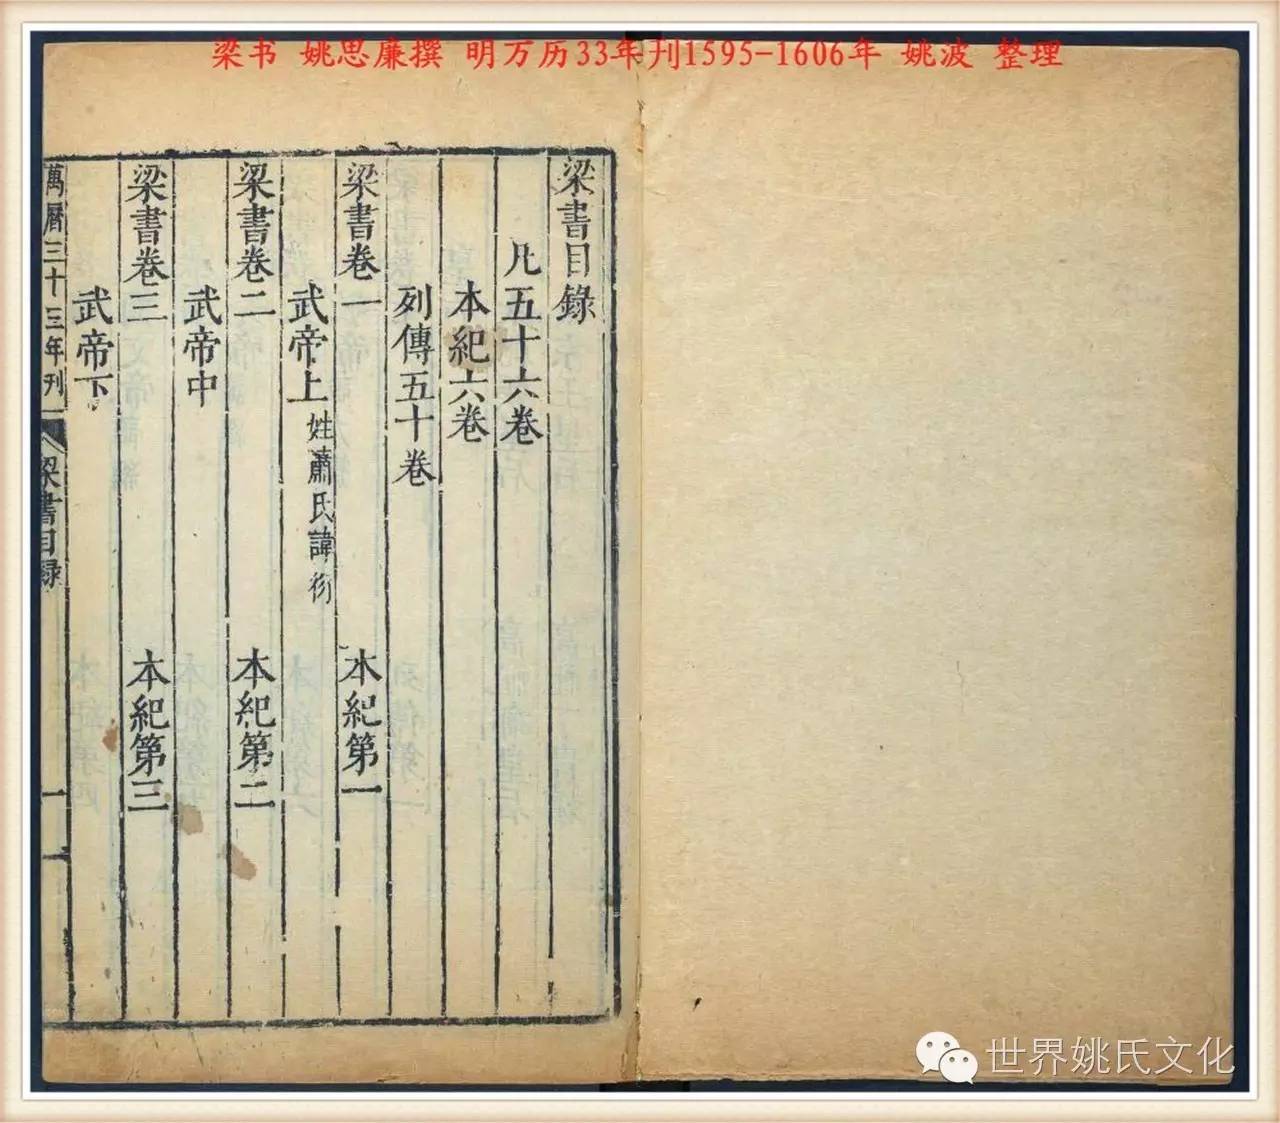 梁书 姚思廉撰 明万历33年刊1595-1606年 姚波 整理
梁書目錄
凡五十六卷
本紀六卷
列傳五十卷
梁書卷一 本紀第一
武帝上 姓蕭氏諱衍
梁書卷二 本紀第二
武帝中
梁書卷三 本紀第三
武帝下
萬曆三十三年刊 梁書目録 一
世界姚氏文化